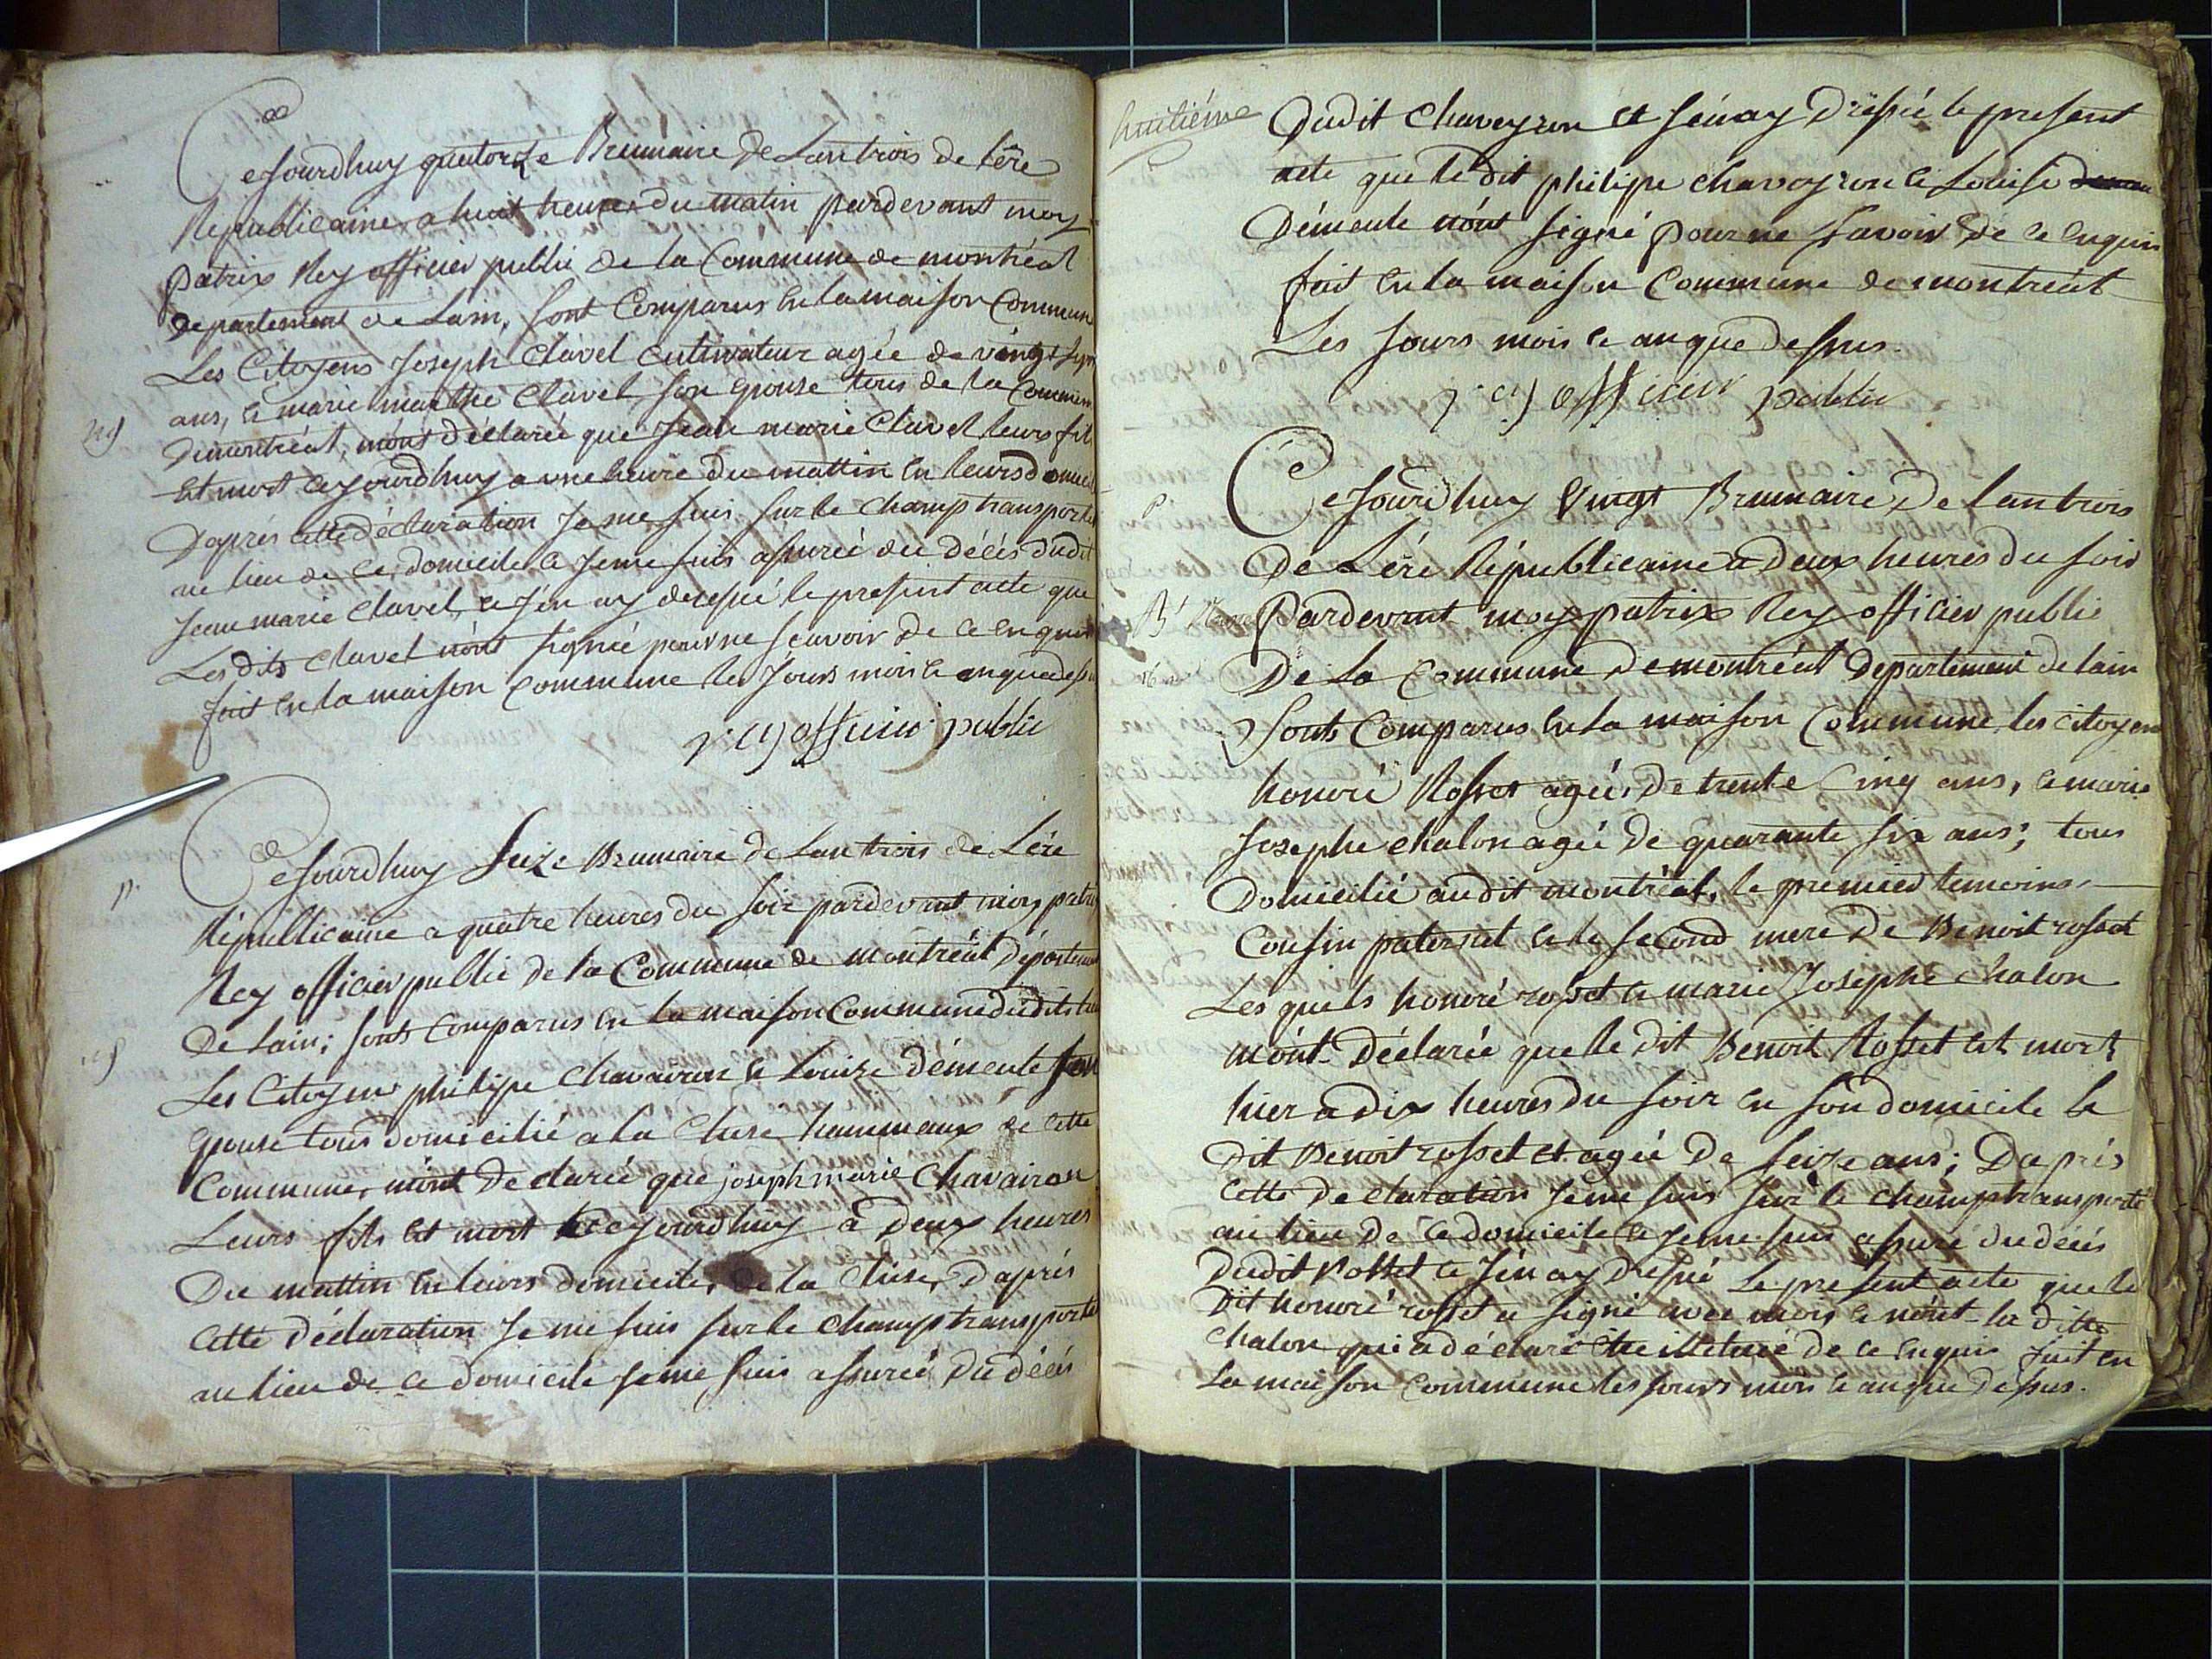 Cejourdhuy quatorze Brumaire De Lan trois de lére
Républicaine a huit heures du matin pardevant moy
patrix Rey officier public de la Commune de montréal
departement de Lain, sont Comparus en la maison Commune
Les Citoyens Joseph Clavel Cultivateur agée de vingt sept
ans, et marie marthe Clavel son epouse tous de la Commune
De montréal, m'ont déclarée que Jean marie Clavel leurs fils
est mort cejourdhuy a une heure du mattin en leurs domicile
D'aprés cette déclaration Je me suis sur le champ transporté
au lieu de ce domicile et Je me suis assurée du décés dudit
Jean marie Clavel, et J'en ay dressé le present acte que
Les dits Clavel n'ont signée pour ne scavoir de ce enquis
fait en la maison Commune les Jours mois et an que dessus
officier public
Cejourdhuy Seize Brumaire de Lan trois de Lére
p.
Républicaine a quatre heures du soir pardevant moy patrix
Rey officier public de la Commune de montréal Département
De Lain; sont Comparus en la maison Commune dudit lieu
Les Citoyens philipe Chavairon et Louise démeule son
epouse tous domicilié a la Cluse hammaux de cette
Commune, m'ont Declarée que joseph marie Chavairon
Leurs fils est mort cejourdhuy a Deux heures
Du mattin en leurs domicile, de la Cluse, D'aprés
Cette déclaration Je me suis sur le champ transporté
au lieu de ce domicile Je me suis assurée du décés
huitiéme
Dudit Chaveyron et J'en ay Dressé le present
acte que le dit philipe chavayron et Louise
Démeule n'ont signé pour ne savoir De ce enquis
fait en la maison Commune de montréal
Les Jours mois et an que dessus.
officier public
Cejourdhuy Vingt Brumaire De lan trois
p.
De Lére Républicaine a Deux heures du soir
Pardevant moy patrix Rey officier public
De La Commune De montréal Departement de lain
Sont Comparus en la maison Commune les citoyens
honoré Rosset agée, De trente Cinq ans, et marie
Josephe chalon agée De quarante six ans; tous
Domicilié audit montréal, le premier temoins
Cousin paternel et le second mere De Benoit rosset
Les quels honoré rosset et marie Josephe chalon
m'ont Déclarée que le dit Benoit Rosset est mort
hier a dix heures Du soir en son domicile le
dit Benoit rosset et agée De seize ans; Daprés
Cette Declaration Je me suis sur le champ transporté
au lieu De ce domicile et Je me suis assuré du décés
Dudit Rosset et J'en ay Dressé le present acte que le
Dit honoré rosset a signé avec moi et n'ont la ditte
Chalon qui a déclaré De ce Enquis fait en
La maison Commune les Jours mois et an que Dessus.